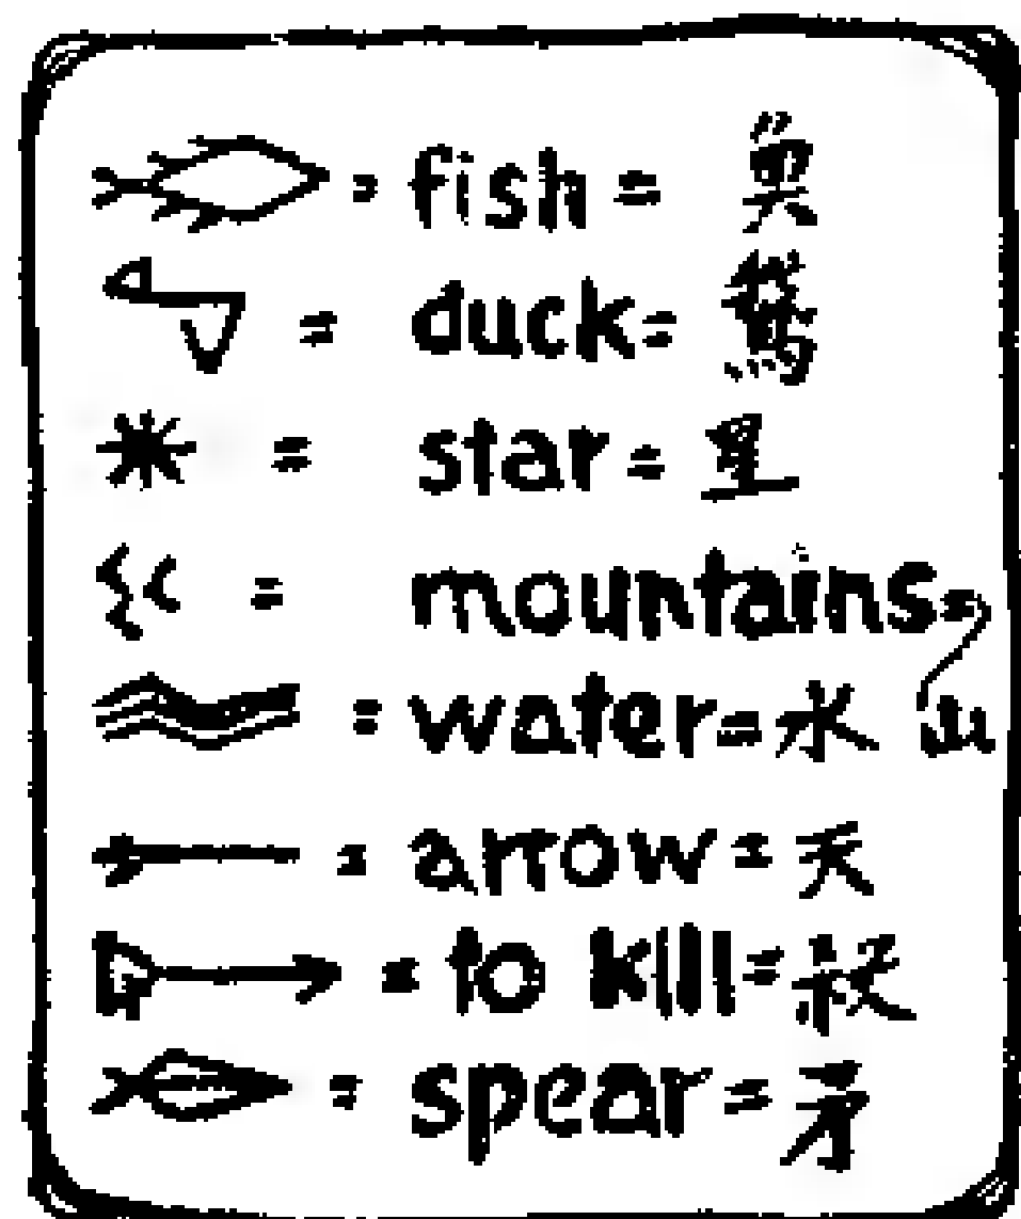 = fish = 魚
= duck =
= star = 星
= mountains = 山
= water = 水
= arrow = 矢
= to kill = 殺
= spear = 矛